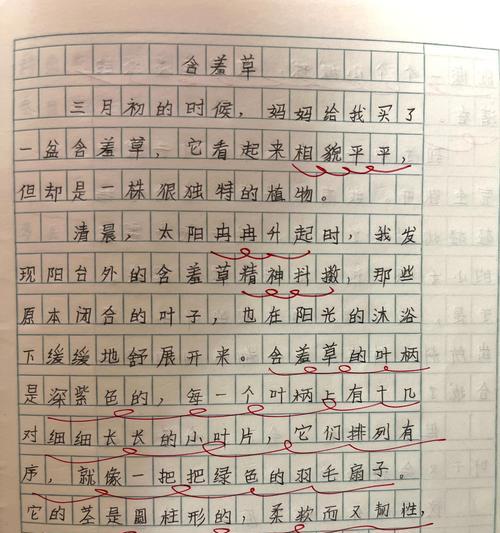 含羞草
三月初的时候，妈妈给我买了
一盆含羞草，它看起来相貌平平，
但却是一株狠独特的植物。
清晨，太阳冉冉升起时，我发
现阳台外的含羞草精神抖擞，那些
原本闭合的叶子，也在阳光的沐浴
下缓缓地舒展开来。含羞草的叶柄
是深紫色的，每一个叶柄占有十几
对细细长长的小叶片，它们排列有
序，就像一把把绿色的羽毛扇子。
它的茎是圆柱形的，柔软而又韧性，